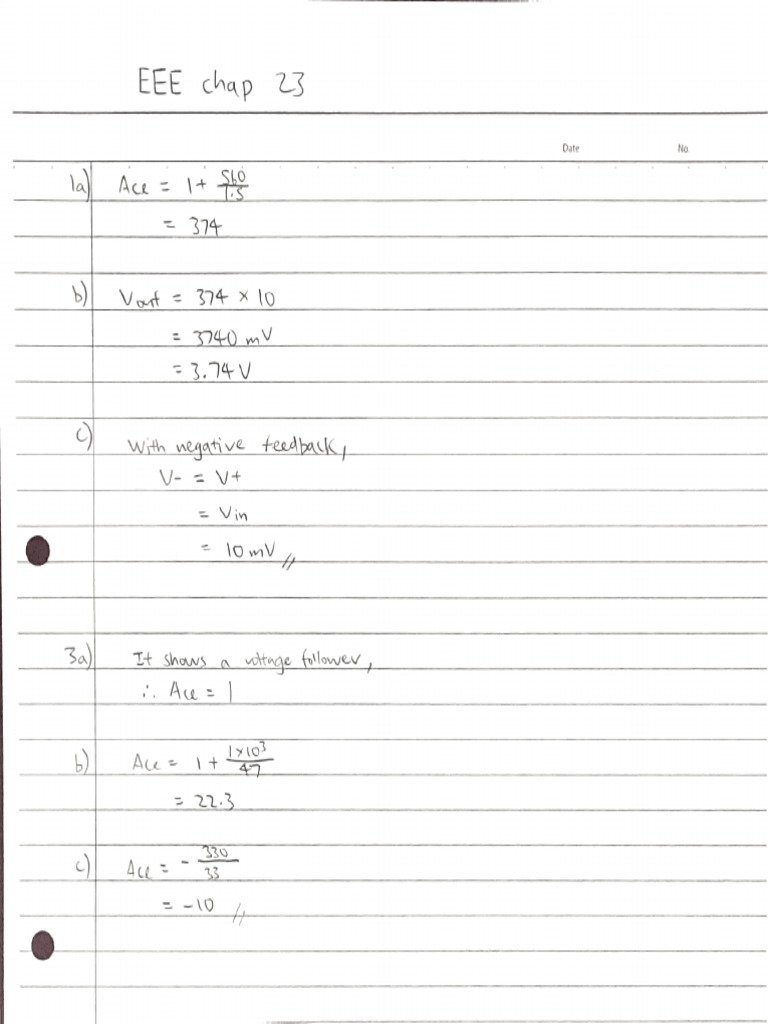 EEE chap 23
Date No.
1a) Acl = 1 + 560/1.5
= 374
b) Vout = 374 × 10
= 3740 mV
= 3.74 V
c) With negative feedback,
V- = V+
= Vin
= 10 mV //
3a) It shows a voltage follower,
∴ Acl = 1
b) Acl = 1 + 1×10³/47
= 22.3
c) Acl = - 330/33
= -10 //